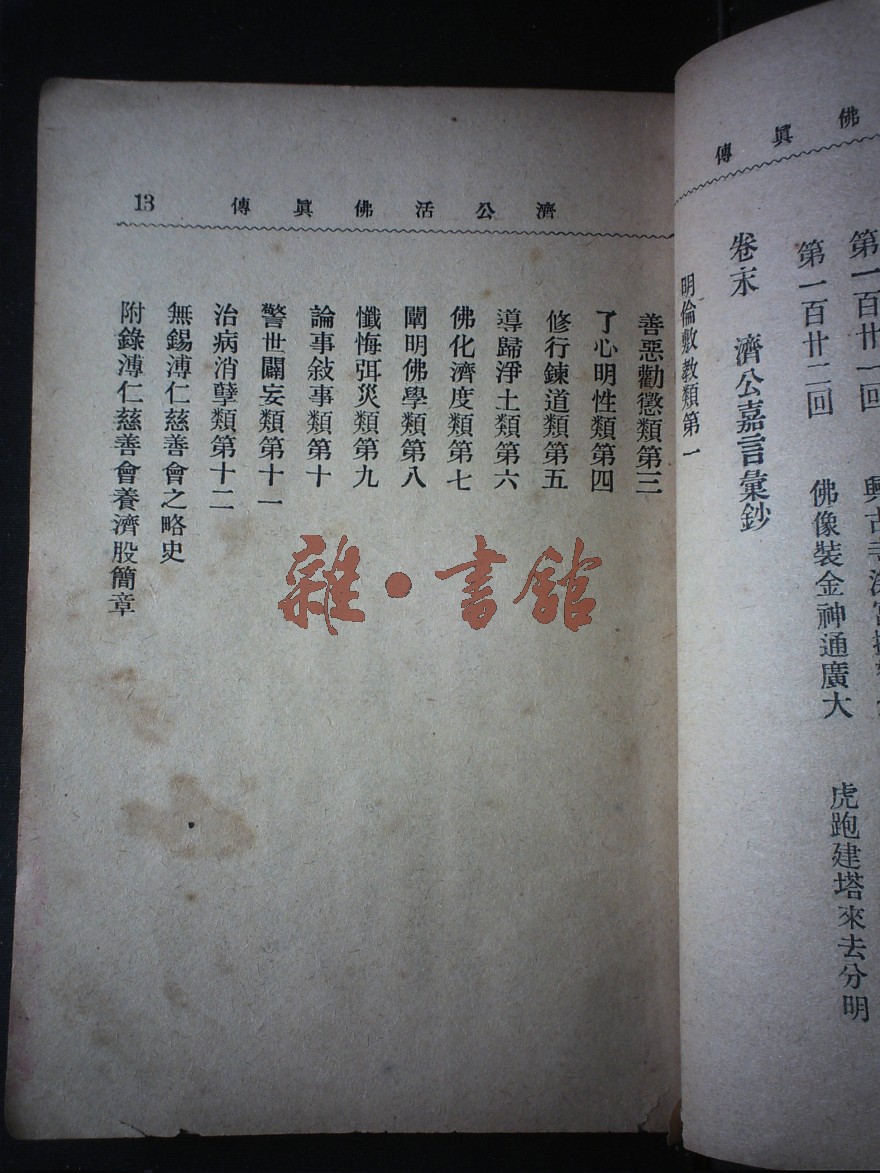 佛眞傳
第一百廿一回 興古寺深宮
第一百廿二回 佛像裝金神通廣大 虎跑建塔來去分明
卷末 濟公嘉言彙鈔
明倫敷教類第一
濟公活佛眞傳 13
善惡勸懲類第三
了心明性類第四
修行鍊道類第五
導歸淨土類第六
佛化濟度類第七
闡明佛學類第八
懺悔弭災類第九
論事敍事類第十
警世闢妄類第十一
治病消孽類第十二
無錫溥仁慈善會之略史
附錄溥仁慈善會養濟股簡章
雜·書館